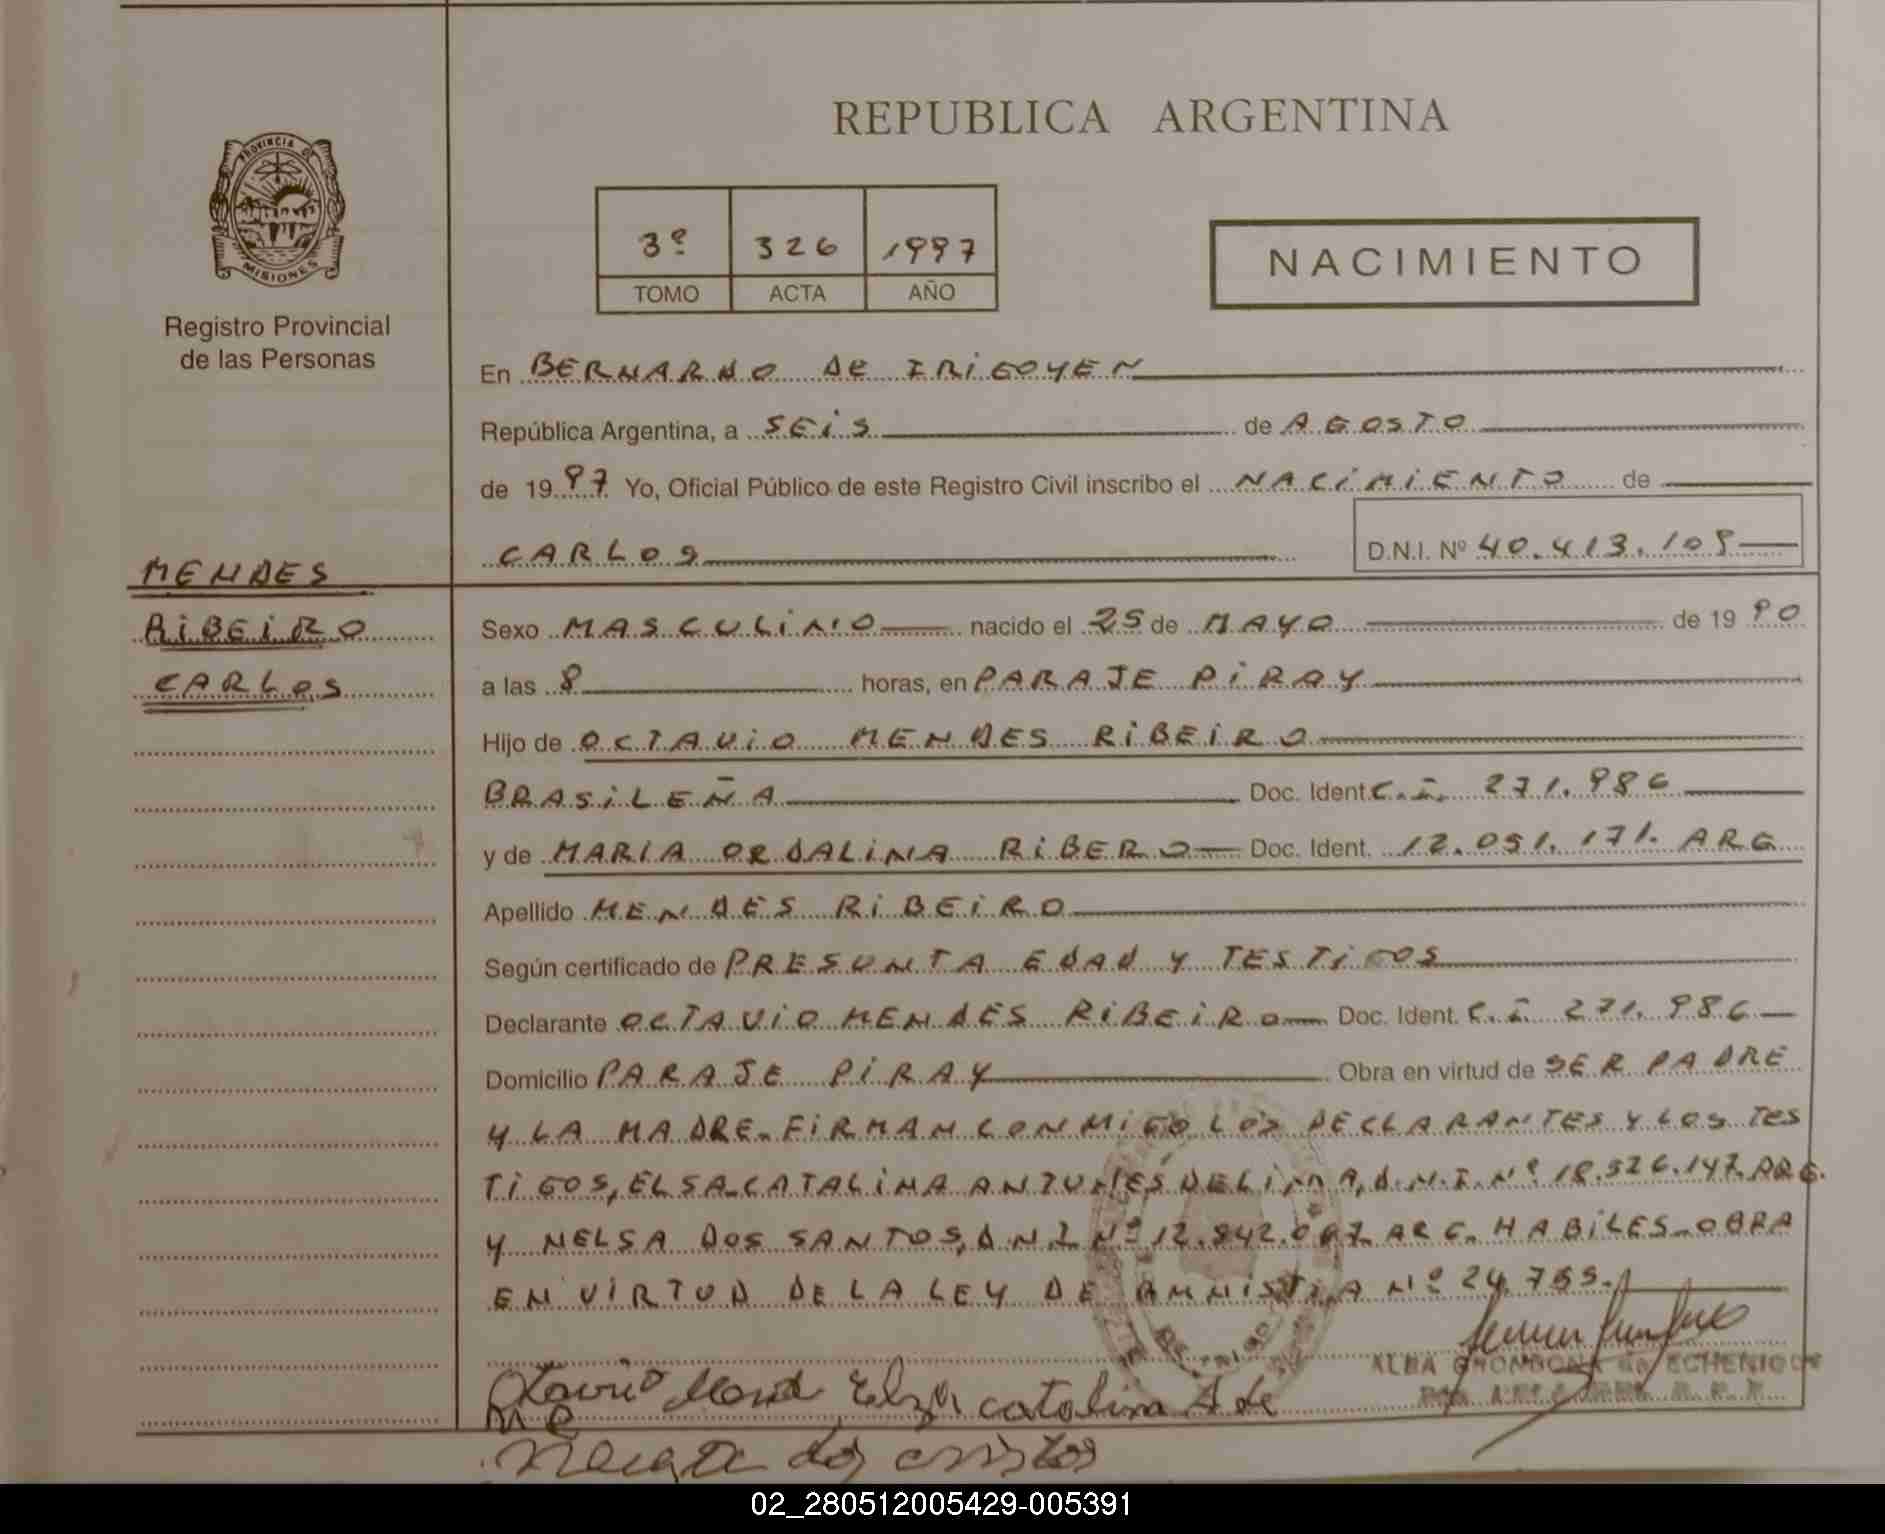 REPUBLICA ARGENTINA
PROVINCIA DE
MISIONES
Registro Provincial
de las Personas
3º 326 1997
TOMO ACTA AÑO
NACIMIENTO
En BERNARDO DE IRIGOYEN
República Argentina, a SEIS de AGOSTO
de 1997 Yo, Oficial Público de este Registro Civil inscribo el NACIMIENTO de
CARLOS D.N.I. Nº 40.413.109
MENDES
RIBEIRO
CARLOS
Sexo MASCULINO nacido el 25 de MAYO de 1990
a las 8 horas, en PARAJE PIRAY
Hijo de OCTAVIO MENDES RIBEIRO
BRASILEÑA Doc. Ident. C.I. 271.986
y de MARIA ORDALINA RIBERO Doc. Ident. 12.051.171. ARG
Apellido MENDES RIBEIRO
Según certificado de PRESUNTA EDAD Y TESTIGOS
Declarante OCTAVIO MENDES RIBEIRO Doc. Ident. C.I. 271.986
Domicilio PARAJE PIRAY Obra en virtud de SER PADRE
Y LA MADRE. FIRMAN CONMIGO LOS DECLARANTES Y LOS TES
TIGOS, ELSA CATALINA ANTUNES DE LIMA, D.N.I. Nº 18.526.147. ARG.
Y NELSA DOS SANTOS, D.N.I Nº 12.842.067. ARG. HABILES. OBRA
EN VIRTUD DE LA LEY DE AMNISTIA Nº 24.755.
Elza catalina A de
ALBA DE ECHENIQUE
dos
02_280512005429-005391